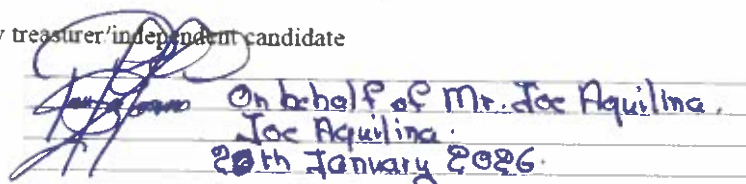 y treasurer/independent candidate
On behalf of Mr. Joe Aquilina.
Joe Aquilina.
20th January 2026.